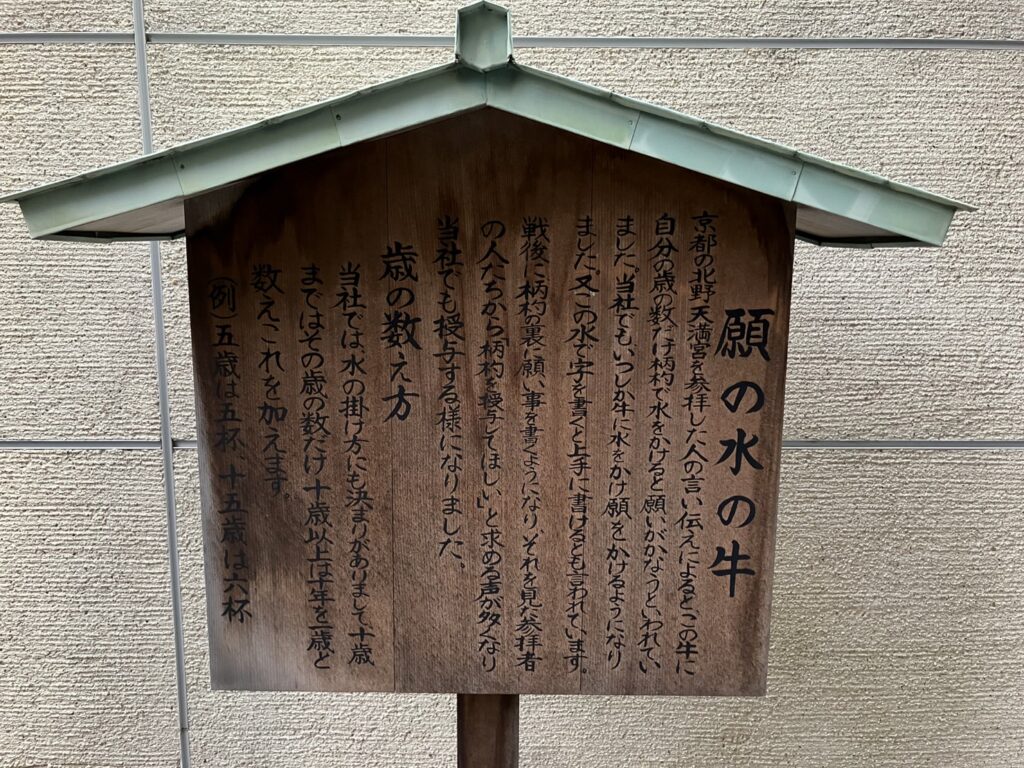 願の水の牛
京都の北野天満宮を参拝した人の言い伝えによると、この牛に
自分の歳の数だけ柄杓で水をかけると願いがかなうといわれてい
ました。当社でもいつしか牛に水をかけ願をかけるようになり
ました。又この水で字を書くと上手に書けるとも言われています。
戦後に柄杓の裏に願い事を書くようになり、それを見た参拝者
の人たちから「柄杓を授与してほしい」と求める声が多くなり
当社でも授与する様になりました。
歳の数え方
当社では水の掛け方にも決まりがありまして、十歳
まではその歳の数だけ十歳以上は十年を一歳と
数えこれを加えます。
(例)五歳は五杯、十五歳は六杯